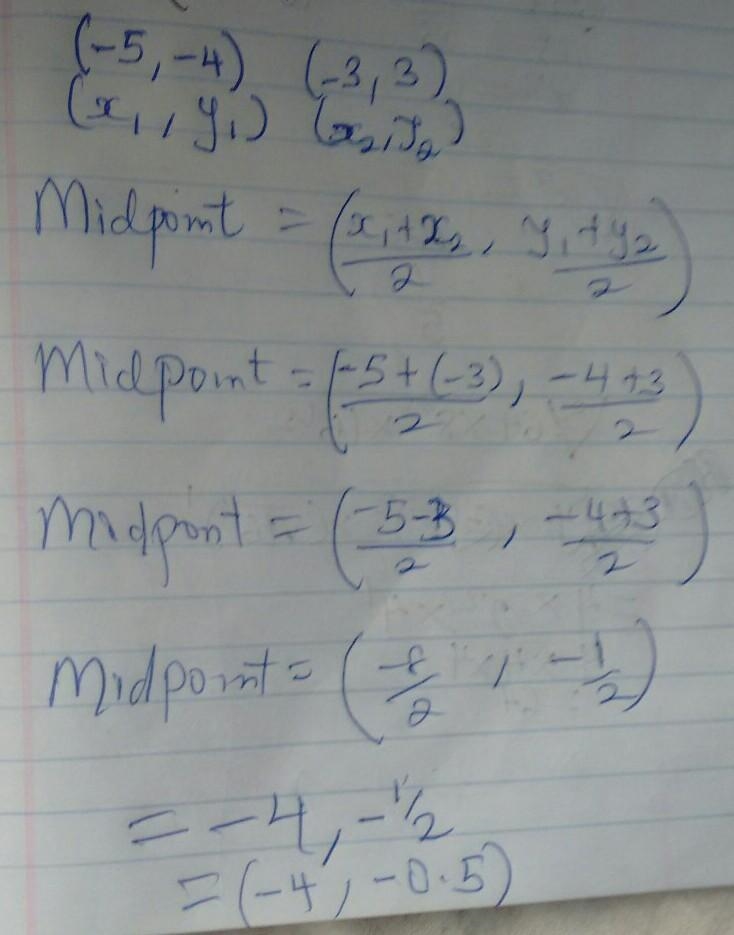 (-5, -4) (-3, 3)
(x₁, y₁) (x₂, y₂)
Midpoint = (x₁+x₂/2, y₁+y₂/2)
Midpoint = (-5+(-3)/2, -4+3/2)
Midpont = (-5-3/2, -4+3/2)
Midpoint = (-8/2, -1/2)
= -4, -1/2
= (-4, -0.5)